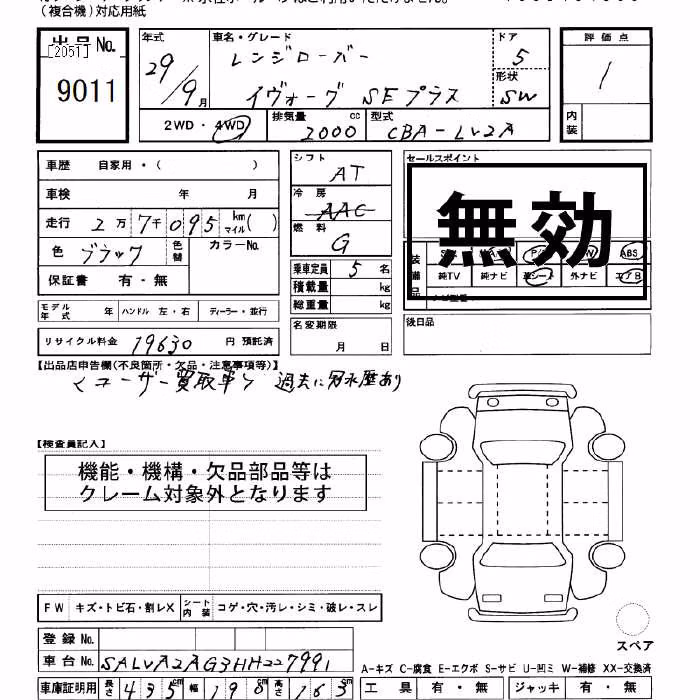 (複合機)対応用紙
出品No.
[2051]
9011
年式
29/9月
車名・グレード
レンジローバー
イヴォーグ SEプラス
ドア
5
形状
SW
評価点
1
内装
2WD・4WD
排気量
2000 cc
型式
CBA-LV2A
車歴 自家用・( )
車検 年 月
走行 2万7千095 km マイル( )
色 ブラック
色替
カラーNo.
保証書 有・無
モデル年式 年 ハンドル 左・右 ディーラー・並行
リサイクル料金 19630 円 預託済
シフト
AT
冷房
AAC
燃料
G
乗車定員 5 名
積載量 kg
総重量 kg
名変期限
月 日
セールスポイント
無効
ABS
純TV 純ナビ 革シート 外ナビ エアB
後日品
【出品店申告欄(不良箇所・欠品・注意事項等)】
<ユーザー買取車> 過去に冠水歴あり
【検査員記入】
機能・機構・欠品部品等は
クレーム対象外となります
FW キズ・トビ石・割レX シート内装 コゲ・穴・汚レ・シミ・破レ・スレ
登録No.
車台No. SALVA2AG3HH227991
車庫証明用 長さ 435cm 幅 190cm 高さ 163cm
スペア
A-キズ C-腐食 E-エクボ S-サビ U-凹ミ W-補修 XX-交換済
工具 有・無 ジャッキ 有・無